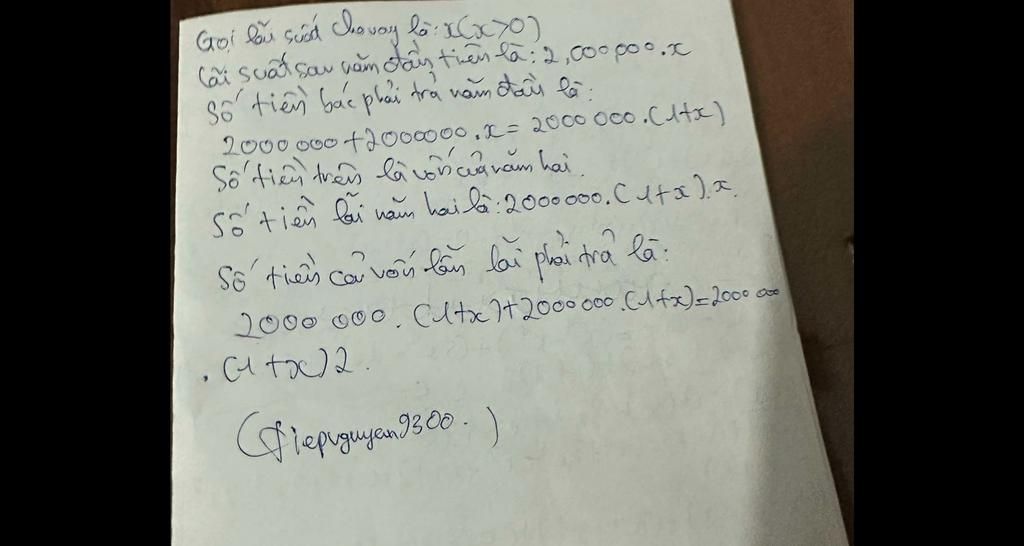 Gọi lãi suất cho vay là: x(x>0)
Lãi suất sau năm đầu tiên là: 2,000000.x
Số tiền bác phải trả năm đầu là:
2000000+2000000.x= 2000 000.(1+x)
Số tiền trên là vốn của năm hai.
Số tiền lãi năm hai là: 2000000.(1+x).x.
Số tiền cả vốn lẫn lãi phải trả là:
2000 000. (1+x)+2000 000.(1+x)=2000 000
.(1+x)2.
(Diepnguyen9300.)